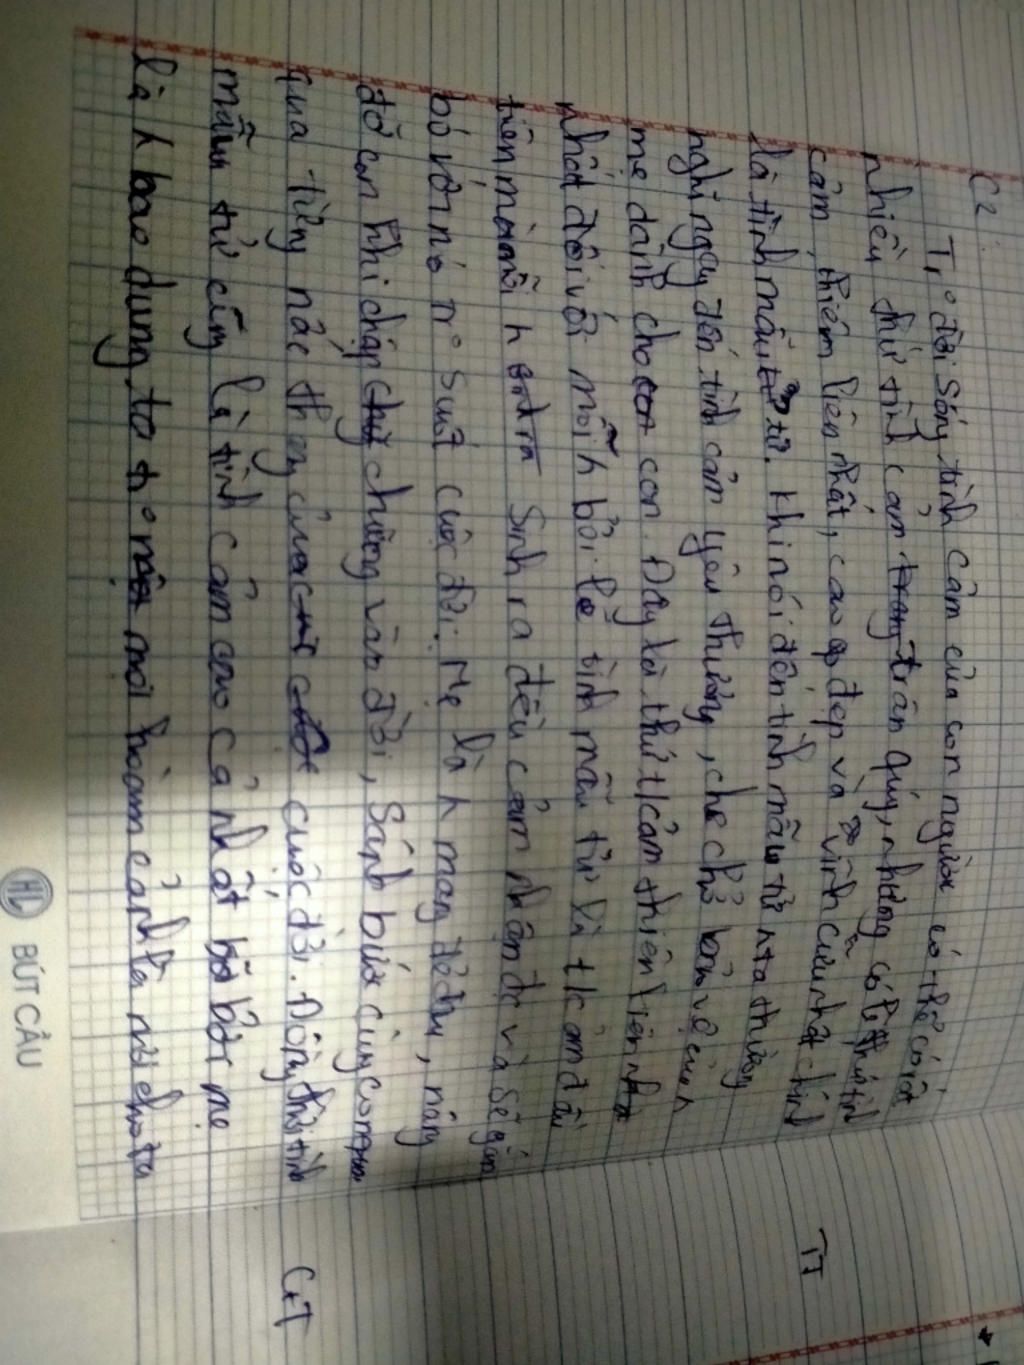 C2:
Tr° đời sống tình cảm của con người có thể có rất
nhiều thứ tình cảm trân quý, nhưng có lẽ thứ tình
cảm thiêm liên nhất, cao đẹp và vĩnh cửu nhất chính
là tình mẫu tử. Khi nói đến tình mẫu tử nta thường
nghĩ ngay đến tình cảm yêu thương, che chở của n
mẹ dành cho con. Đây là thứ t/cảm thiên liên nhất
nhất đối với mỗi n bởi lẽ tình mẫu tử là t/cảm đầu
tiên mà mỗi n sinh ra đều cảm nhận đc và sẽ gắn
bó với nó tr° suốt cuộc đời. Mẹ là n mang đẻ đau, nâng
đỡ con khi chập chững vào đời, sánh bước cùng con qua
qua từng nấc thang của cuộc đời. Đồng thời tình
mẫu tử cũng là tình cảm cao cả nhất bởi mẹ
là n bao dung ta tr° mọi hoàn cảnh là nơi cho ta
TT
C,T
HL BÚT CẦU